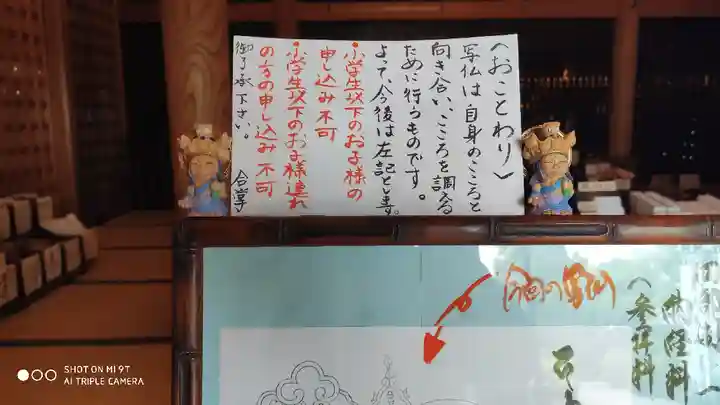 〈おことわり〉
写仏は自身のこころと
向き合い、こころを調える
ために行うものです。
よって、今後は左記とします。
小学生以下のお子様の
申し込み不可
小学生以下のお子様連れ
の方の申し込み不可
御了承下さい。 合掌
今回の写仏
納経料
〈参拝料
SHOT ON MI 9T
AI TRIPLE CAMERA